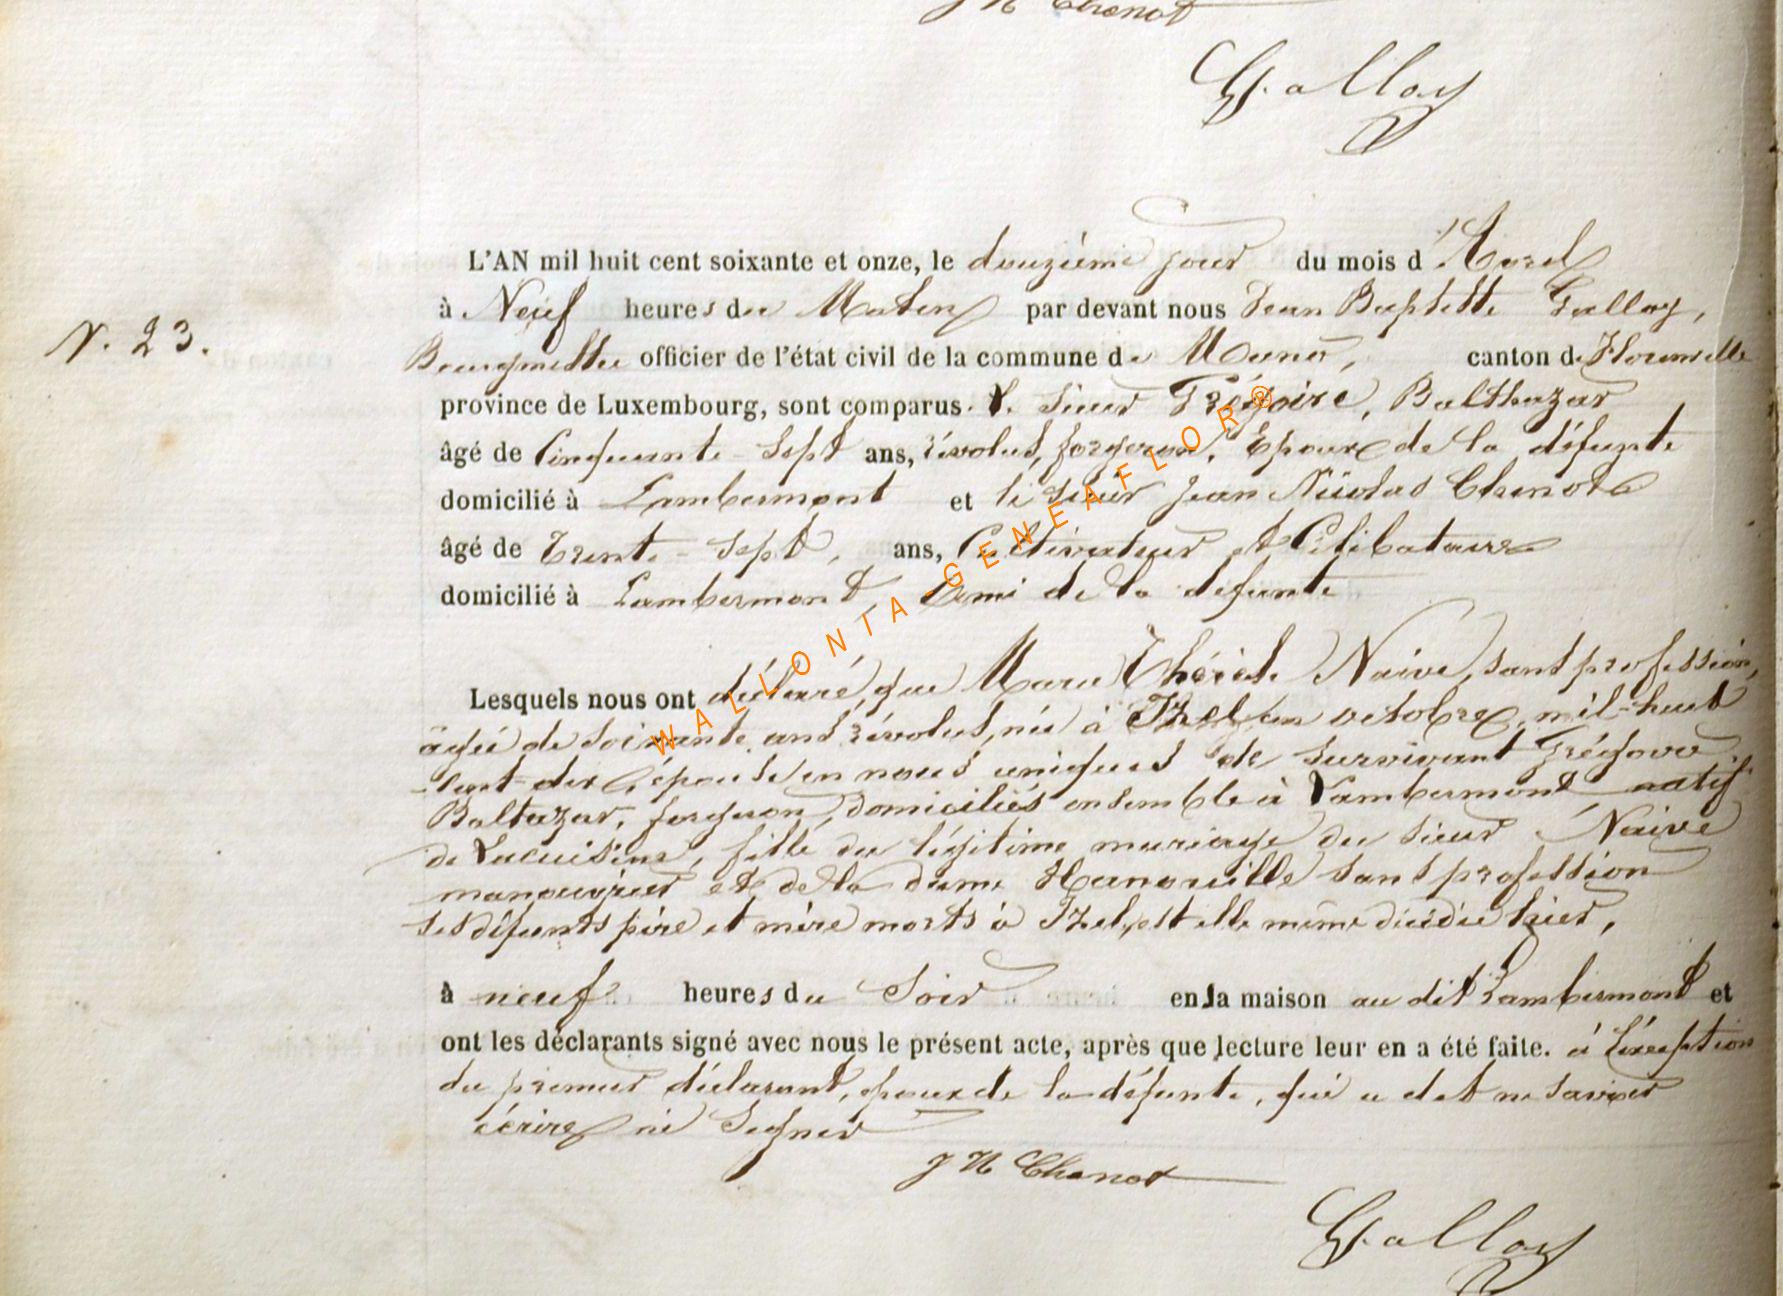 J N Chenot
G. alloy
L'AN mil huit cent soixante et onze, le douzième jour du mois d'Avril
à Neuf heures du Matin par devant nous Jean Baptiste Galloy,
N. 23.
Bourgmestre officier de l'état civil de la commune de Muno, canton de Florenville
province de Luxembourg, sont comparus. L. Sieur Grégoire, Balthazar
âgé de Cinquante-Sept ans, révolus, forgeron, Epoux de la défunte
domicilié à Lambermont et le Sieur Jean Nicolas Chenot
âgé de Trente-Sept, ans, Cultivateur et Célibataire
domicilié à Lambermont, Ami de la défunte
Lesquels nous ont déclaré, que Marie Thérèse Naive, sans profession,
âgée de soixante ans révolus, née à Izel, en octobre, mil-huit
-cent-dix, épouse en noces uniques de survivant Grégoire
Baltazar, forgeron, domiciliés ensemble à Lambermont natif
de Lacuisine, fille du légitime mariage du sieur Naive
manouvrier et de la dame Hanouille sans profession
ses défunts père et mère morts à Izel, est elle même décédée hier,
à neuf heures du Soir en la maison au dit Lambermont et
ont les déclarants signé avec nous le présent acte, après que lecture leur en a été faite. à l'éxception
du premier déclarant, époux de la défunte, qui a dit ne savoir
écrire ni Signer
J N Chenot
G. alloy
WALLONTAGENEAFLOR®